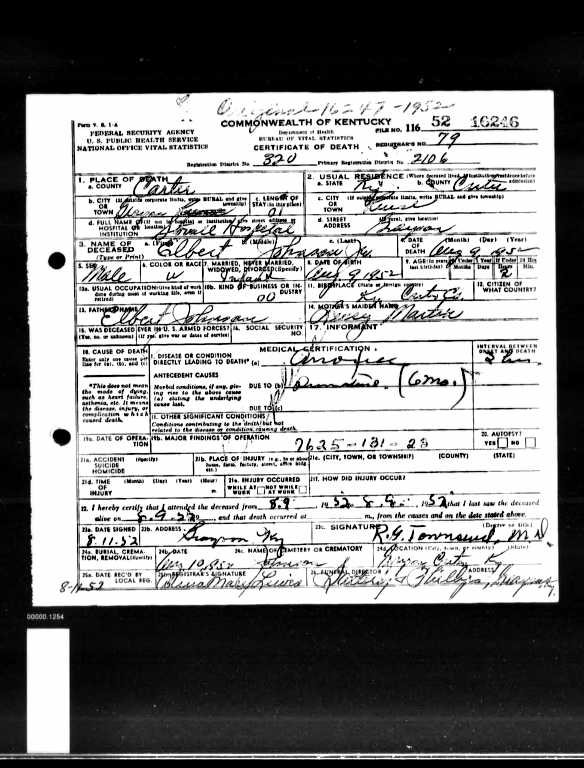 Original 16247-1952
COMMONWEALTH OF KENTUCKY
Form V. S. 1-A
FEDERAL SECURITY AGENCY
U. S. PUBLIC HEALTH SERVICE
NATIONAL OFFICE VITAL STATISTICS
Department of Health
BUREAU OF VITAL STATISTICS
CERTIFICATE OF DEATH
FILE NO. 116 52 16246
REGISTRAR'S NO. 79
Registration District No. 320 Primary Registration District No. 2106
1. PLACE OF DEATH
a. COUNTY Carter
2. USUAL RESIDENCE (Where deceased lived. If institution: residence before admission)
a. STATE Ky. b. COUNTY Carter
b. CITY (If outside corporate limits, write RURAL and give township)
OR TOWN
c. LENGTH OF STAY (in this place)
c. CITY (If outside corporate limits, write RURAL and give township)
OR TOWN
d. FULL NAME OF (If not in hospital or institution, give street address or location)
HOSPITAL OR INSTITUTION Stovall Hospital
d. STREET ADDRESS (If rural, give location)
3. NAME OF DECEASED (Type or Print)
a. (First) Elbert b. (Middle) c. (Last) Johnson, Jr.
4. DATE OF DEATH (Month) (Day) (Year) Aug 9 1952
5. SEX Male
6. COLOR OR RACE W
7. MARRIED, NEVER MARRIED, WIDOWED, DIVORCED (Specify) Infant
8. DATE OF BIRTH Aug 9 1952
9. AGE (In years last birthday) If Under 1 Year Months Days If Under 24 Hrs Hours Min. 2
10a. USUAL OCCUPATION (Give kind of work done during most of working life, even if retired)
10b. KIND OF BUSINESS OR INDUSTRY 00
11. BIRTHPLACE (State or foreign country) Ky Carter Co.
12. CITIZEN OF WHAT COUNTRY?
13. FATHER'S NAME Elbert Johnson
14. MOTHER'S MAIDEN NAME Martin
15. WAS DECEASED EVER IN U. S. ARMED FORCES? (Yes, no, or unknown) (If yes, give war or dates of service)
16. SOCIAL SECURITY NO.
17. INFORMANT
18. CAUSE OF DEATH
Enter only one cause per line for (a), (b), and (c)
MEDICAL CERTIFICATION
INTERVAL BETWEEN ONSET AND DEATH
I. DISEASE OR CONDITION DIRECTLY LEADING TO DEATH* (a)
*This does not mean the mode of dying, such as heart failure, asthenia, etc. It means the disease, injury, or complication which caused death.
ANTECEDENT CAUSES
Morbid conditions, if any, giving rise to the above cause (a) stating the underlying cause last.
DUE TO (b) Premature (6 mo.)
DUE TO (c)
II. OTHER SIGNIFICANT CONDITIONS
Conditions contributing to the death but not related to the disease or condition causing death.
19a. DATE OF OPERATION
19b. MAJOR FINDINGS OF OPERATION
7625-131-23
20. AUTOPSY? YES NO
21a. ACCIDENT SUICIDE HOMICIDE (Specify)
21b. PLACE OF INJURY (e.g., in or about home, farm, factory, street, office bldg., etc.)
21c. (CITY, TOWN, OR TOWNSHIP) (COUNTY) (STATE)
21d. TIME OF INJURY (Month) (Day) (Year) (Hour) m.
21e. INJURY OCCURRED WHILE AT WORK NOT WHILE AT WORK
21f. HOW DID INJURY OCCUR?
22. I hereby certify that I attended the deceased from 8.9, 1952, 8.9, 1952, that I last saw the deceased
alive on 8.9.52, and that death occurred at m., from the causes and on the date stated above.
23a. DATE SIGNED 8.11.52
23b. ADDRESS Grayson Ky
23c. SIGNATURE R. G. Townsend, M.D. (Degree or title)
24a. BURIAL, CREMATION, REMOVAL (Specify)
24b. DATE Aug 10 1952
24c. NAME OF CEMETERY OR CREMATORY Johnson
24d. LOCATION (City, town, or county) (State) Carter Ky
25a. DATE REC'D BY LOCAL REG. 8-11-52
25b. REGISTRAR'S SIGNATURE Mary Lewis
25. FUNERAL DIRECTOR ADDRESS Phillips, Grayson Ky
00000.1254